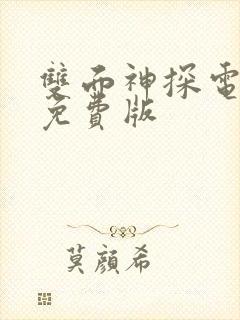 雙面神探電
免費版
莫顏希